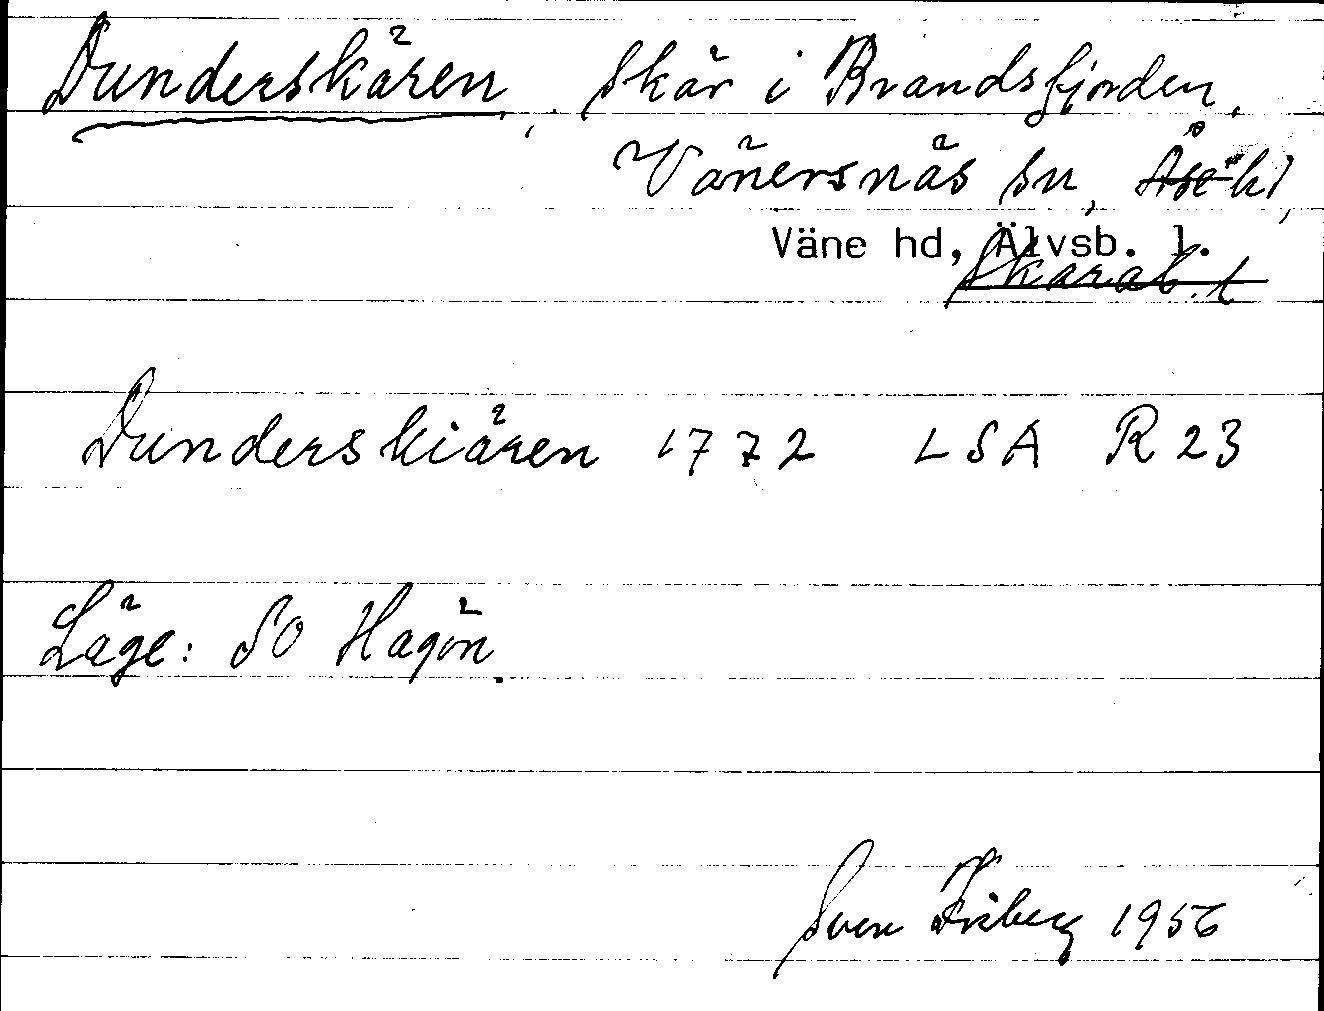 Dunderskären, Skär i Brandsfjorden,
Vänersnäs sn, Åse hd,
Väne hd, Älvsb. l.
Skarab. l
Dunderskiären 1772 LSA R 23
Läge: SO Hagön.
Sven Friberg 1956